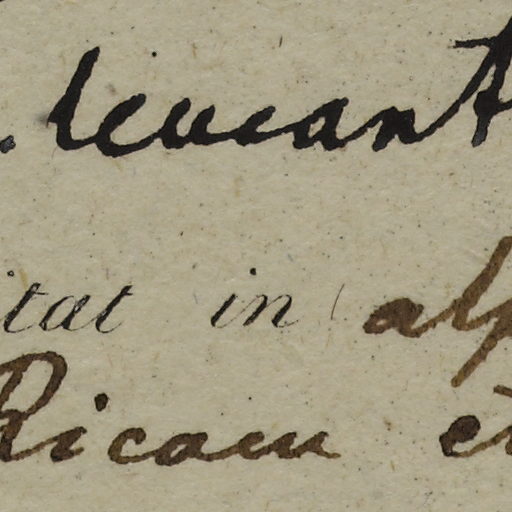 leucant
itat in alp
Ricou et